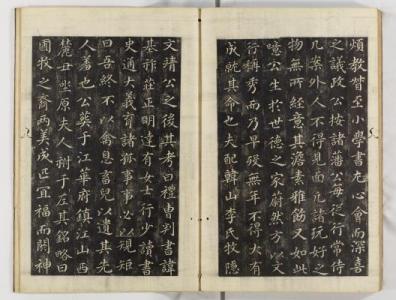 煩教督至小學書尤心會而深喜
之議政公按諸藩公每從行常侍
几案外人不得見面凡諸玩好之
物無所經意其澹素雅飭又如此
噫公生於世德之家蔚然方以文
行稱秀而乃早歿無年不得大有
成就其命也夫配韓山李氏牧隱
文靖公之後其考曰禮曹判書諱
基祚莊正明達有女士行少讀書
史通大義育諸孤事事必以規矩
曰吾終不以禽息畜以遺其先
人羞也公葬于江華府鎮江山西
麓丑坐原夫人祔于左其銘略曰
圃牧之裔兩美成匹宜福而閼神